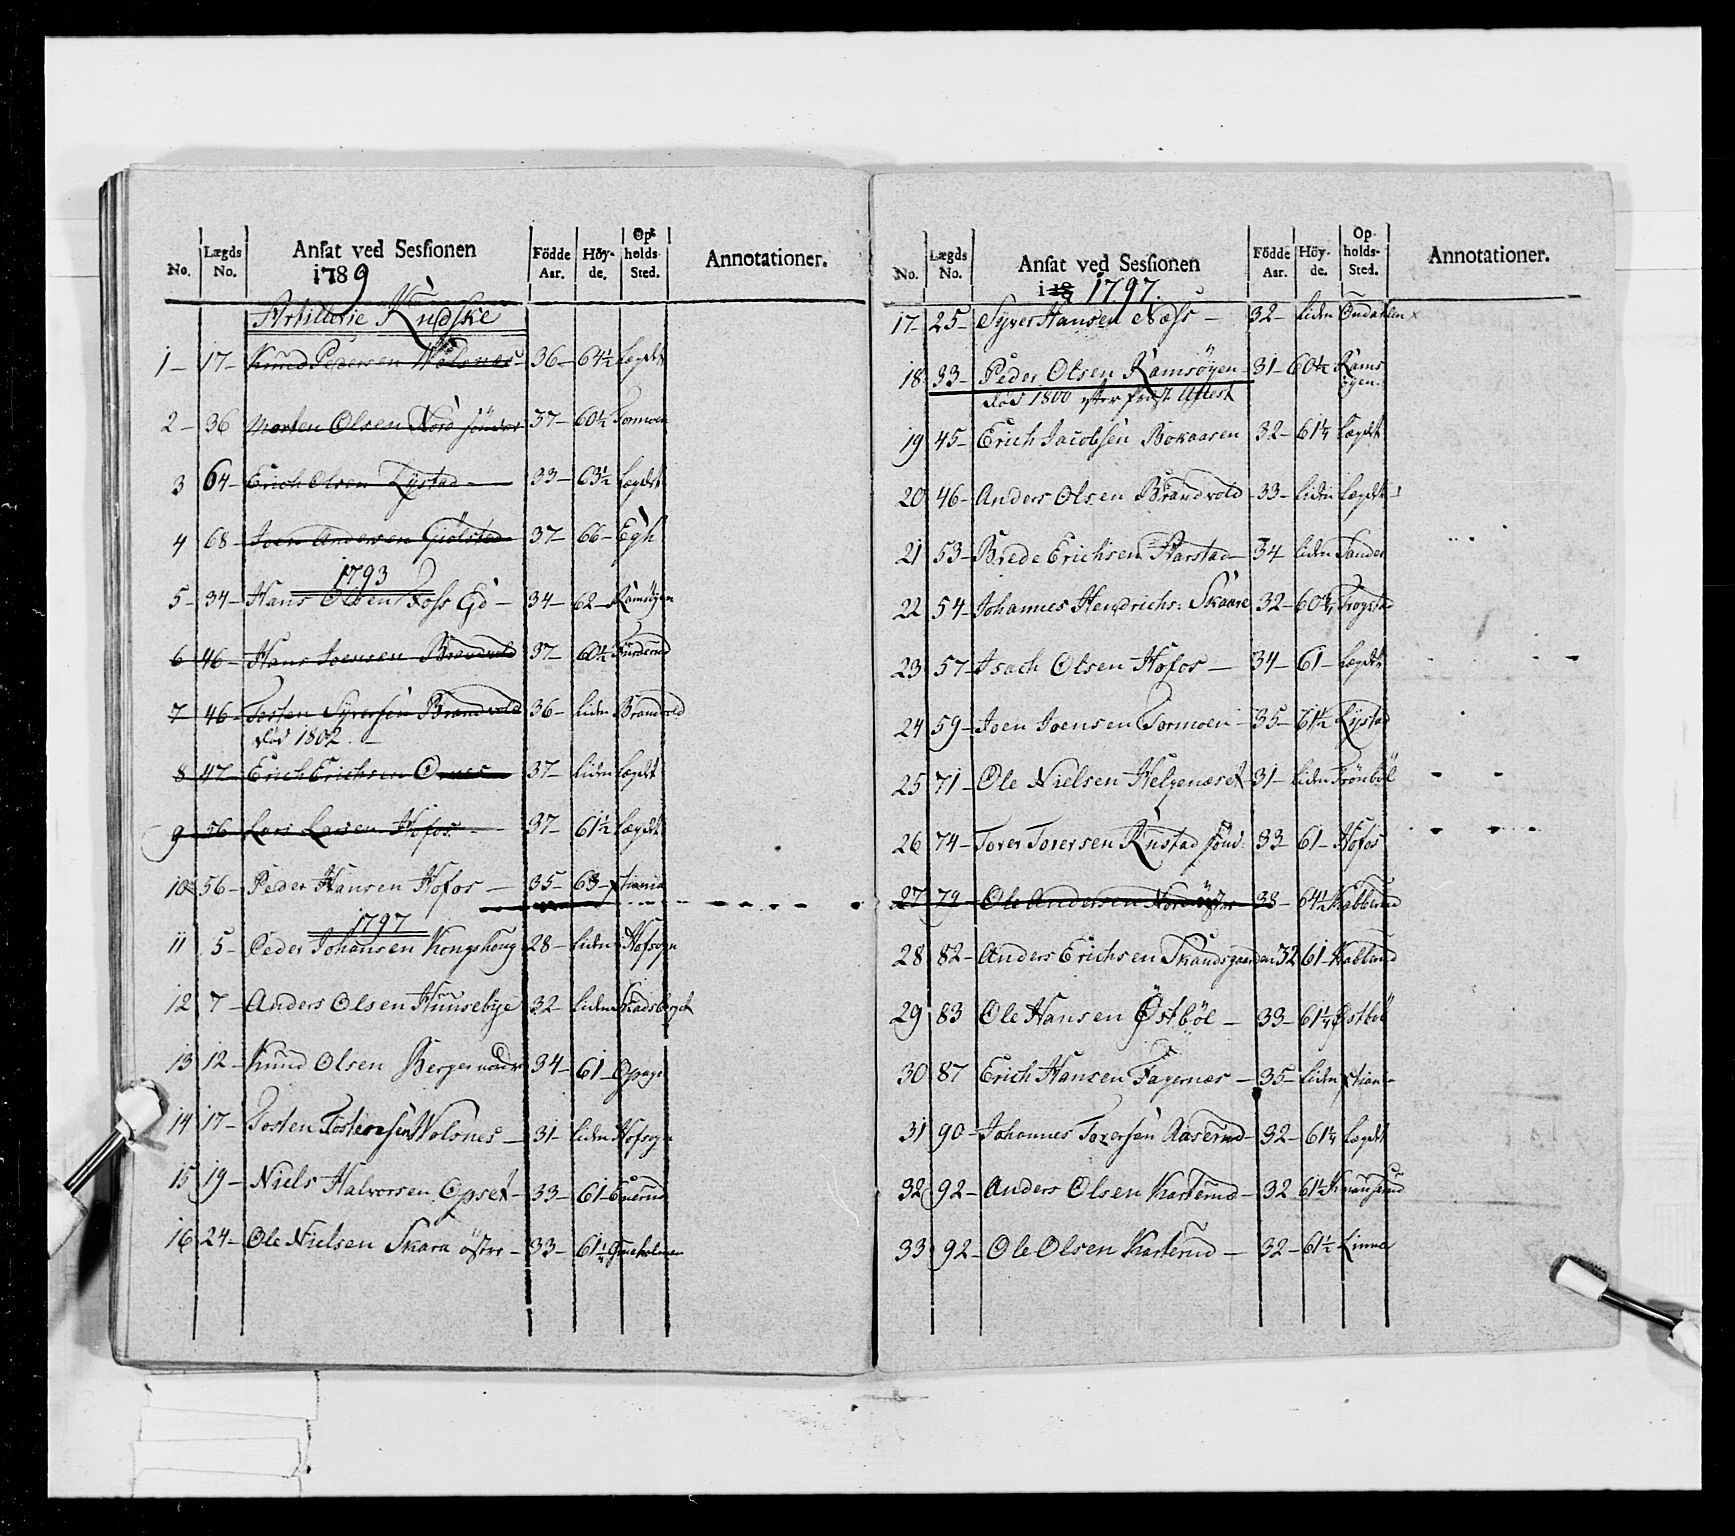 No. Lægds No. Ansat ved Sessionen i 1789 Födde Aar. Höyde. Opholds-Sted. Annotationer.
Artillerie Kudske
1 – 17 – Knud Pedersen Wolsnes 36 – 64½ Lægdet
2 – 36 Morten Olsen Nord söndre 37 – 60½ Tormoen
3 64 – Erich Olsen Lystad – 33 – 63½ Lægdet
4 68 – Joen Andersen Giölstad 37 – 66 – Egh
1793
5 – 34 – Hans Olsen Foss Gd – 34 – 62 – Ramsöyen
6 46 – Hans Joensen Brandvold 37 – 60½
7 46 – Tosten Syversen Brandvold 36 – liden Brandvold
död 1802. –
8 47 – Erich Erichsen 37 – liden Lægdet
9 56 Lars Larsen Hofos – 37 – 61½ Lægdet
10 56 – Peder Hansen Hofos – 35 – 63 –
1797
11 5 – Peder Johansen Kongshoug 28 – liden Hofsogn
12 7 – Anders Olsen Huusebye 32 – liden
13 12 – Knud Olsen Berger nordre 34 – 61 –
14 17 – Tosten Tostensen Wolsnes – 31 – liden Hofsogn
15 19 – Niels Halvorsen Opset – 33 – 61 –
16 24 – Ole Nielsen Skara östre – 33 – 61¼ Grueholmen
No. Lægds No. Ansat ved Sessionen i 18 1797. Födde Aar. Höyde. Opholds-Sted. Annotationer.
17 – 25 – Syver Hansen Næss – 32 – liden Ondahlen
18 33 – Peder Olsen Ramsöyen – 31 – 60½ Ramsöyen.
död 1800 efter Attest
19 45 – Erich Jacobsen Bokaasen 32 – 61¼ Lægdet
20 46 – Anders Olsen Brandvold – 33 – liden Lægdet
21 53 – Brede Erichsen Harstad – 34 liden Sander
22 54 – Johannes Hendrichs: Skaare 32 – 60¾ Frogstad
23 57 – Isach Olsen Hofos – 34 – 61 – Lægdet
24 59 – Joen Joensen Tormoen – 35 – 61½ Lystad
25 71 – Ole Nielsen Helgenæset 31 – liden Frönböl
26 74 – Torer Torersen Rustad sönd. 33 – 61 – Hofos
27 79 – Ole Andersen Nord östre 38 – 64½ Kabberud
28 82 – Anders Erichsen Skandsgaarden 32 61 – Kabberud
29 83 Ole Hansen Östböl – 33 – 61¼ Östböl
30 87 Erich Hansen Fagernæs – 35 – liden
31 90 – Johannes Torersen Aaserud – 32 – 61¼ Lægdet
32 92 – Anders Olsen Karterud – 32 61½
33 92 – Ole Olsen Karterud – 32 – 61½ Linna